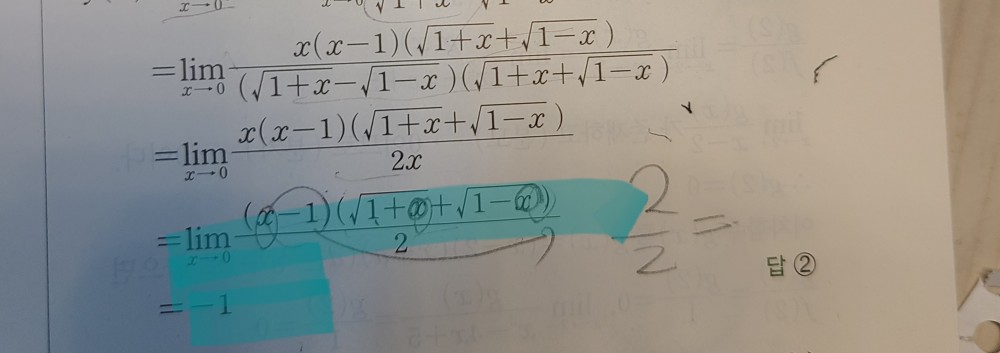 x→0
=lim x→0 x(x−1)(√1+x+√1−x) / (√1+x−√1−x)(√1+x+√1−x)
=lim x→0 x(x−1)(√1+x+√1−x) / 2x
=lim x→0 (x−1)(√1+x+√1−x) / 2 2/2 =
답 ②
=−1